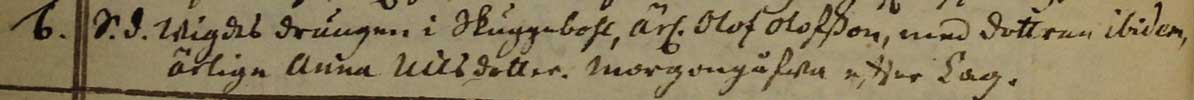 6. S. d. Wigdes drängen i Skuggebohl, ärl. Olof Olofsson, med dottren ibidem,
ärliga Anna Nilsdotter. Morgongåfva efter Lag.